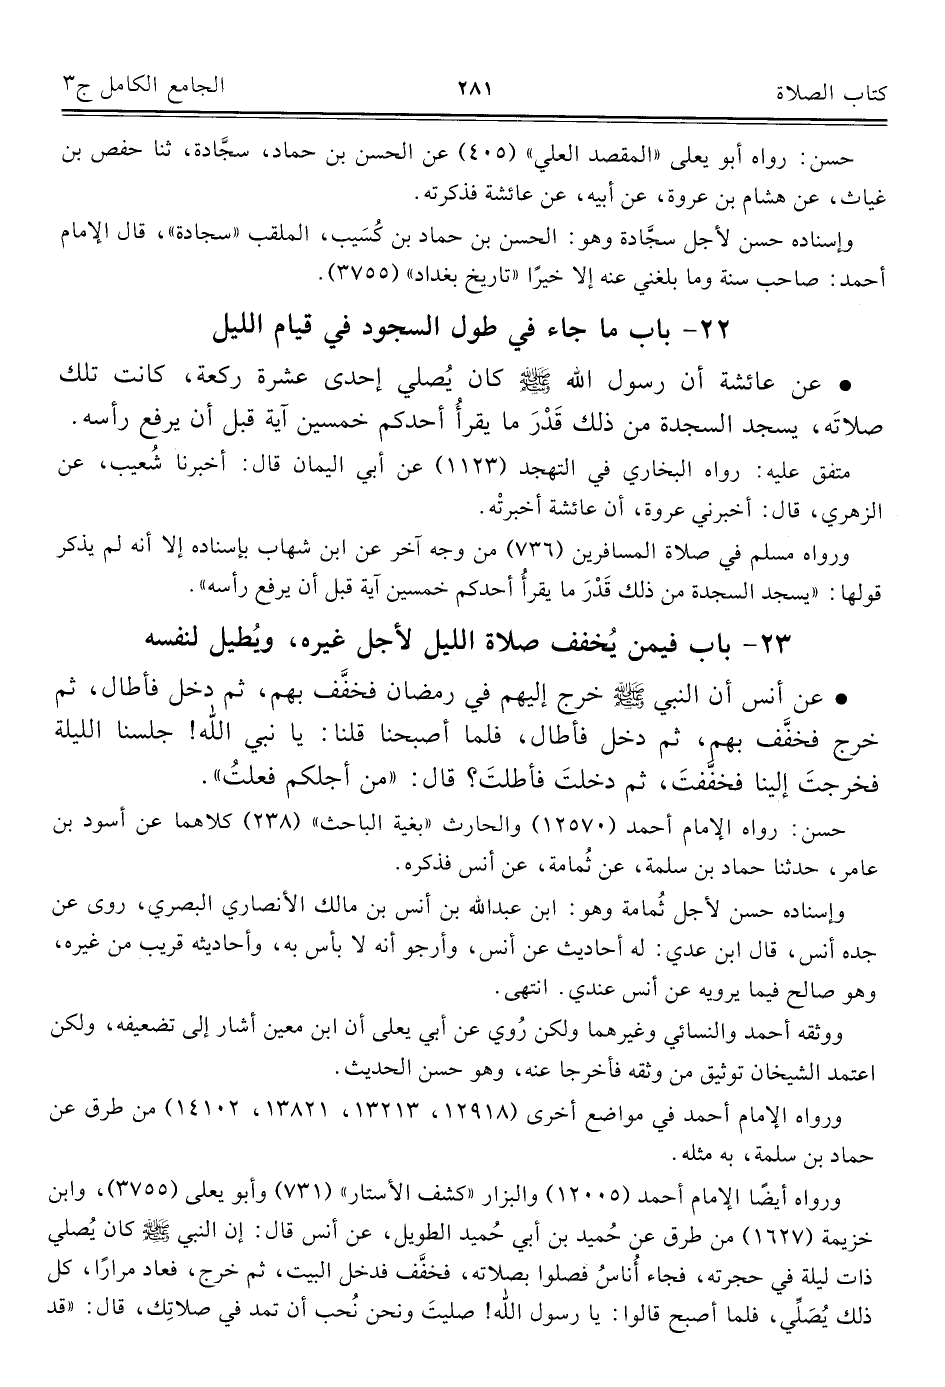 كتاب الصلاة ٢٨١ الجامع الكامل ج٣
حسن: رواه أبو يعلى «المقصد العلي» (٤٠٥) عن الحسن بن حماد، سجَّادة، ثنا حفص بن
غياث، عن هشام بن عروة، عن أبيه، عن عائشة فذكرته.
وإسناده حسن لأجل سجَّادة وهو: الحسن بن حماد بن كُسَيب، الملقب «سجادة»، قال الإمام
أحمد: صاحب سنة وما بلغني عنه إلا خيرًا «تاريخ بغداد» (٣٧٥٥).
٢٢- باب ما جاء في طول السجود في قيام الليل
• عن عائشة أن رسول الله ﷺ كان يُصلي إحدى عشرة ركعة، كانت تلك
صلاتَه، يسجد السجدة من ذلك قَدْرَ ما يقرأُ أحدكم خمسين آية قبل أن يرفع رأسه.
متفق عليه: رواه البخاري في التهجد (١١٢٣) عن أبي اليمان قال: أخبرنا شُعيب، عن
الزهري، قال: أخبرني عروة، أن عائشة أخبرتْه.
ورواه مسلم في صلاة المسافرين (٧٣٦) من وجه آخر عن ابن شهاب بإسناده إلا أنه لم يذكر
قولها: «يسجد السجدة من ذلك قَدْرَ ما يقرأُ أحدكم خمسين آية قبل أن يرفع رأسه».
٢٣- باب فيمن يُخفف صلاة الليل لأجل غيره، ويُطيل لنفسه
• عن أنس أن النبي ﷺ خرج إليهم في رمضان فخفَّف بهم، ثم دخل فأطال، ثم
خرج فخفَّف بهم، ثم دخل فأطال، فلما أصبحنا قلنا: يا نبي الله! جلسنا الليلة
فخرجتَ إلينا فخفَّفتَ، ثم دخلتَ فأطلتَ؟ قال: «من أجلكم فعلتُ».
حسن: رواه الإمام أحمد (١٢٥٧٠) والحارث «بغية الباحث» (٢٣٨) كلاهما عن أسود بن
عامر، حدثنا حماد بن سلمة، عن ثُمامة، عن أنس فذكره.
وإسناده حسن لأجل ثُمامة وهو: ابن عبدالله بن أنس بن مالك الأنصاري البصري، روى عن
جده أنس، قال ابن عدي: له أحاديث عن أنس، وأرجو أنه لا بأس به، وأحاديثه قريب من غيره،
وهو صالح فيما يرويه عن أنس عندي. انتهى.
ووثقه أحمد والنسائي وغيرهما ولكن رُوي عن أبي يعلى أن ابن معين أشار إلى تضعيفه، ولكن
اعتمد الشيخان توثيق من وثقه فأخرجا عنه، وهو حسن الحديث.
ورواه الإمام أحمد في مواضع أخرى (١٢٩١٨، ١٣٢١٣، ١٣٨٢١، ١٤١٠٢) من طرق عن
حماد بن سلمة، به مثله.
ورواه أيضًا الإمام أحمد (١٢٠٠٥) والبزار «كشف الأستار» (٧٣١) وأبو يعلى (٣٧٥٥)، وابن
خزيمة (١٦٢٧) من طرق عن حُميد بن أبي حُميد الطويل، عن أنس قال: إن النبي ﷺ كان يُصلي
ذات ليلة في حجرته، فجاء أُناسُ فصلوا بصلاته، فخفَّف فدخل البيت، ثم خرج، فعاد مرارًا، كل
ذلك يُصَلِّي، فلما أصبح قالوا: يا رسول الله! صليتَ ونحن نُحب أن تمد في صلاتِك، قال: «قد